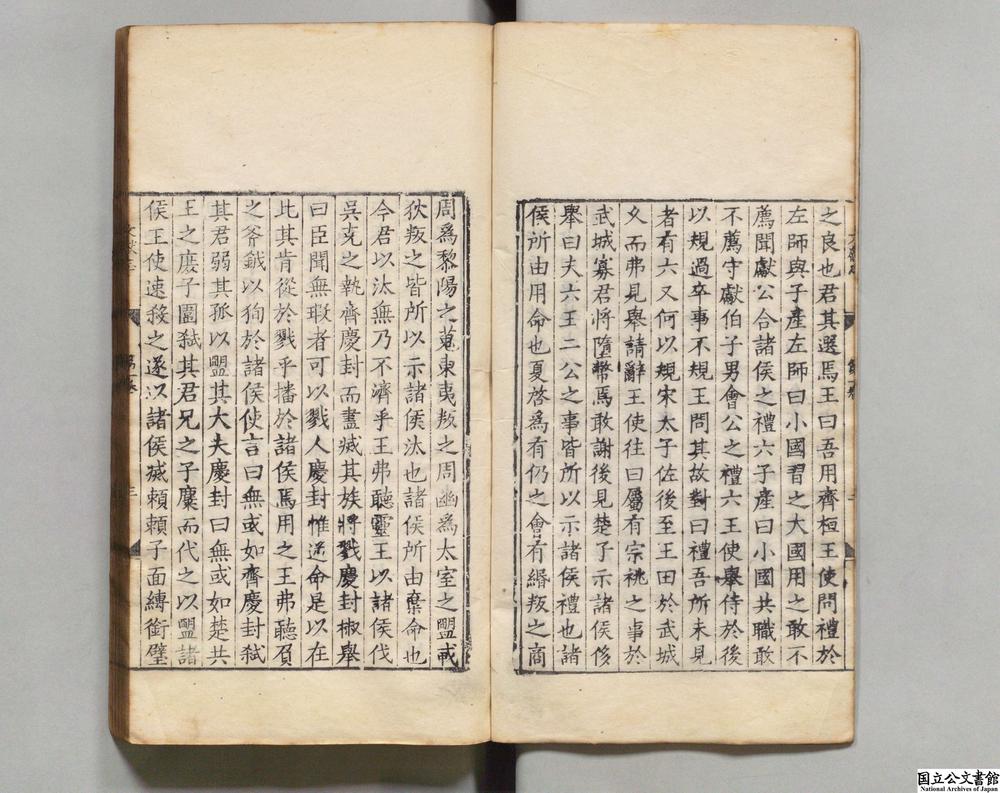 之良也君其選焉王曰吾用齊桓王使問禮於
左師與子產左師曰小國習之大國用之敢不
薦聞獻公合諸侯之禮六子產曰小國共職敢
不薦守獻伯子男會公之禮六王使舉侍於後
以規過卒事不規王問其故對曰禮吾所未見
者有六又何以規宋太子佐後至王田於武城
久而弗見舉請辭王使往曰屬有宗祧之事於
武城寡君將墮幣焉敢謝後見楚子示諸侯侈
舉曰夫六王二公之事皆所以示諸侯禮也諸
侯所由用命也夏啓爲有仍之會有緡叛之商
周爲黎陽之蒐東夷叛之周幽爲太室之盟戎
狄叛之皆所以示諸侯汰也諸侯所由棄命也
今君以汰無乃不濟乎王弗聽靈王以諸侯伐
吳克之執齊慶封而盡滅其族將戮慶封椒舉
曰臣聞無瑕者可以戮人慶封惟逆命是以在
此其肯從於戮乎播於諸侯焉用之王弗聽負
之斧鉞以狥於諸侯使言曰無或如齊慶封弑
其君弱其孤以盟其大夫慶封曰無或如楚共
王之庶子圍弑其君兄之子麇而代之以盟諸
侯王使速殺之遂以諸侯滅賴賴子面縛銜璧
国立公文書館
National Archives of Japan